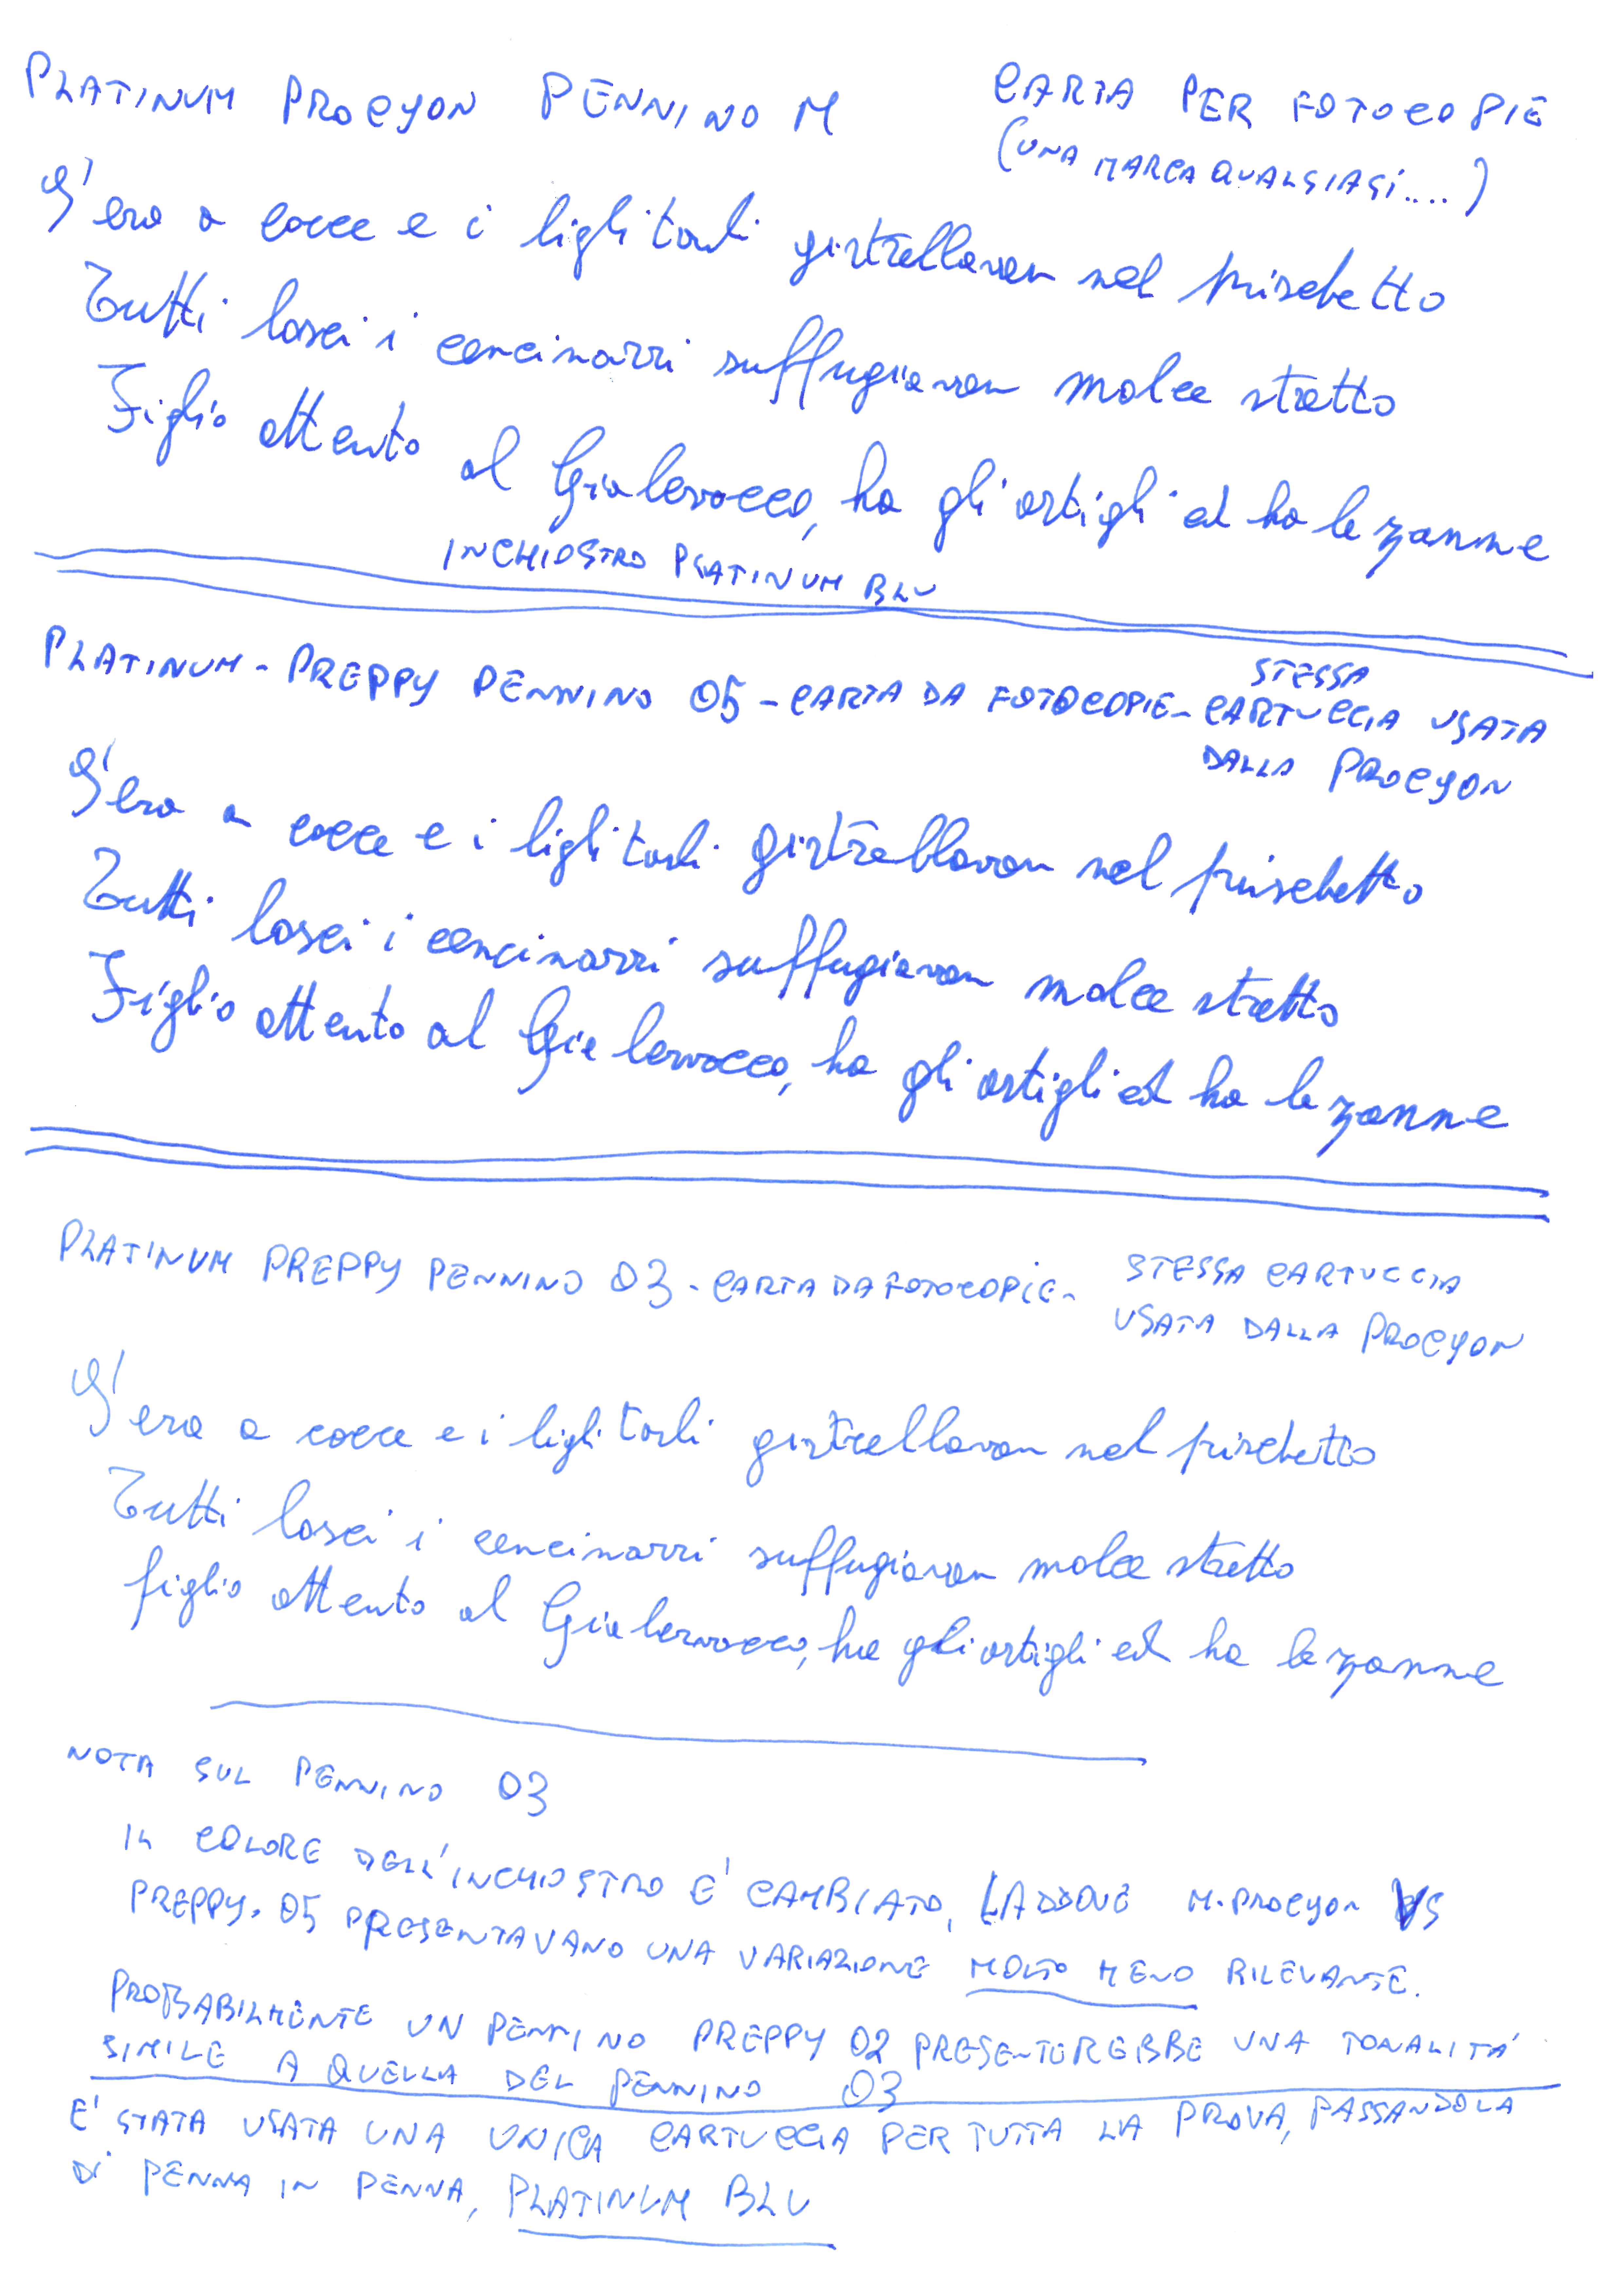 PLATINUM PROCYON PENNINO M
CARTA PER FOTOCOPIE
(UNA MARCA QUALSIASI....)
S'era a cocce e i ligli tarli girtrellavan nel pischetto
Tutti losci i cencinarri suffuggiavan molce stretto
Figlio attento al Gialervocco, ha gli artigli ed ha le zanne
INCHIOSTRO PLATINUM BLU
PLATINUM - PREPPY PENNINO 05 - CARTA DA FOTOCOPIE - STESSA CARTUCCIA USATA
DALLA PROCYON
S'era a cocce e i ligli tarli girtrellavan nel pischetto
Tutti losci i cencinarri suffugiavan molce stretto
Figlio attento al Gialervocco, ha gli artigli ed ha le zanne
PLATINUM PREPPY PENNINO 03 - CARTA DA FOTOCOPIE - STESSA CARTUCCIA
USATA DALLA PROCYON
S'era a cocce e i ligli tarli girtrellavan nel pischetto
Tutti losci i cencinarri suffugiavan molce stretto
figlio attento al Gialervocco, ha gli artigli ed ha le zanne
NOTA SUL PENNINO 03
IL COLORE DELL'INCHIOSTRO E' CAMBIATO, LADDOVE M. PROCYON VS
PREPPY. 05 PRESENTAVANO UNA VARIAZIONE MOLTO MENO RILEVANTE.
PROBABILMENTE UN PENNINO PREPPY 02 PRESENTEREBBE UNA TONALITA'
SIMILE A QUELLA DEL PENNINO 03
E' STATA USATA UNA UNICA CARTUCCIA PER TUTTA LA PROVA, PASSANDOLA
DI PENNA IN PENNA, PLATINUM BLU